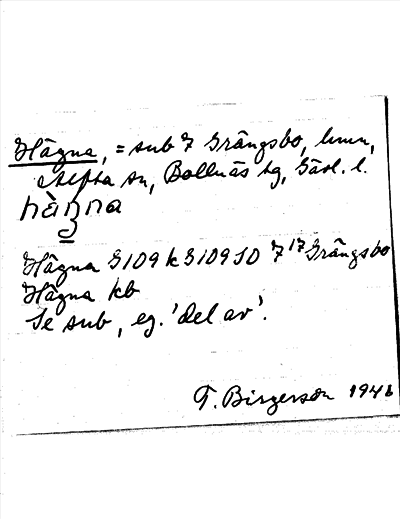 Hågna, = sub 7 Grängsbo, hmn,
Alfta sn, Bollnäs tg, Gävl. l.
Hågna G109 k G109 SO 7 17 Grängsbo
Hågna kb
Se sub, eg. 'del av'.
T. Birgerson 1946